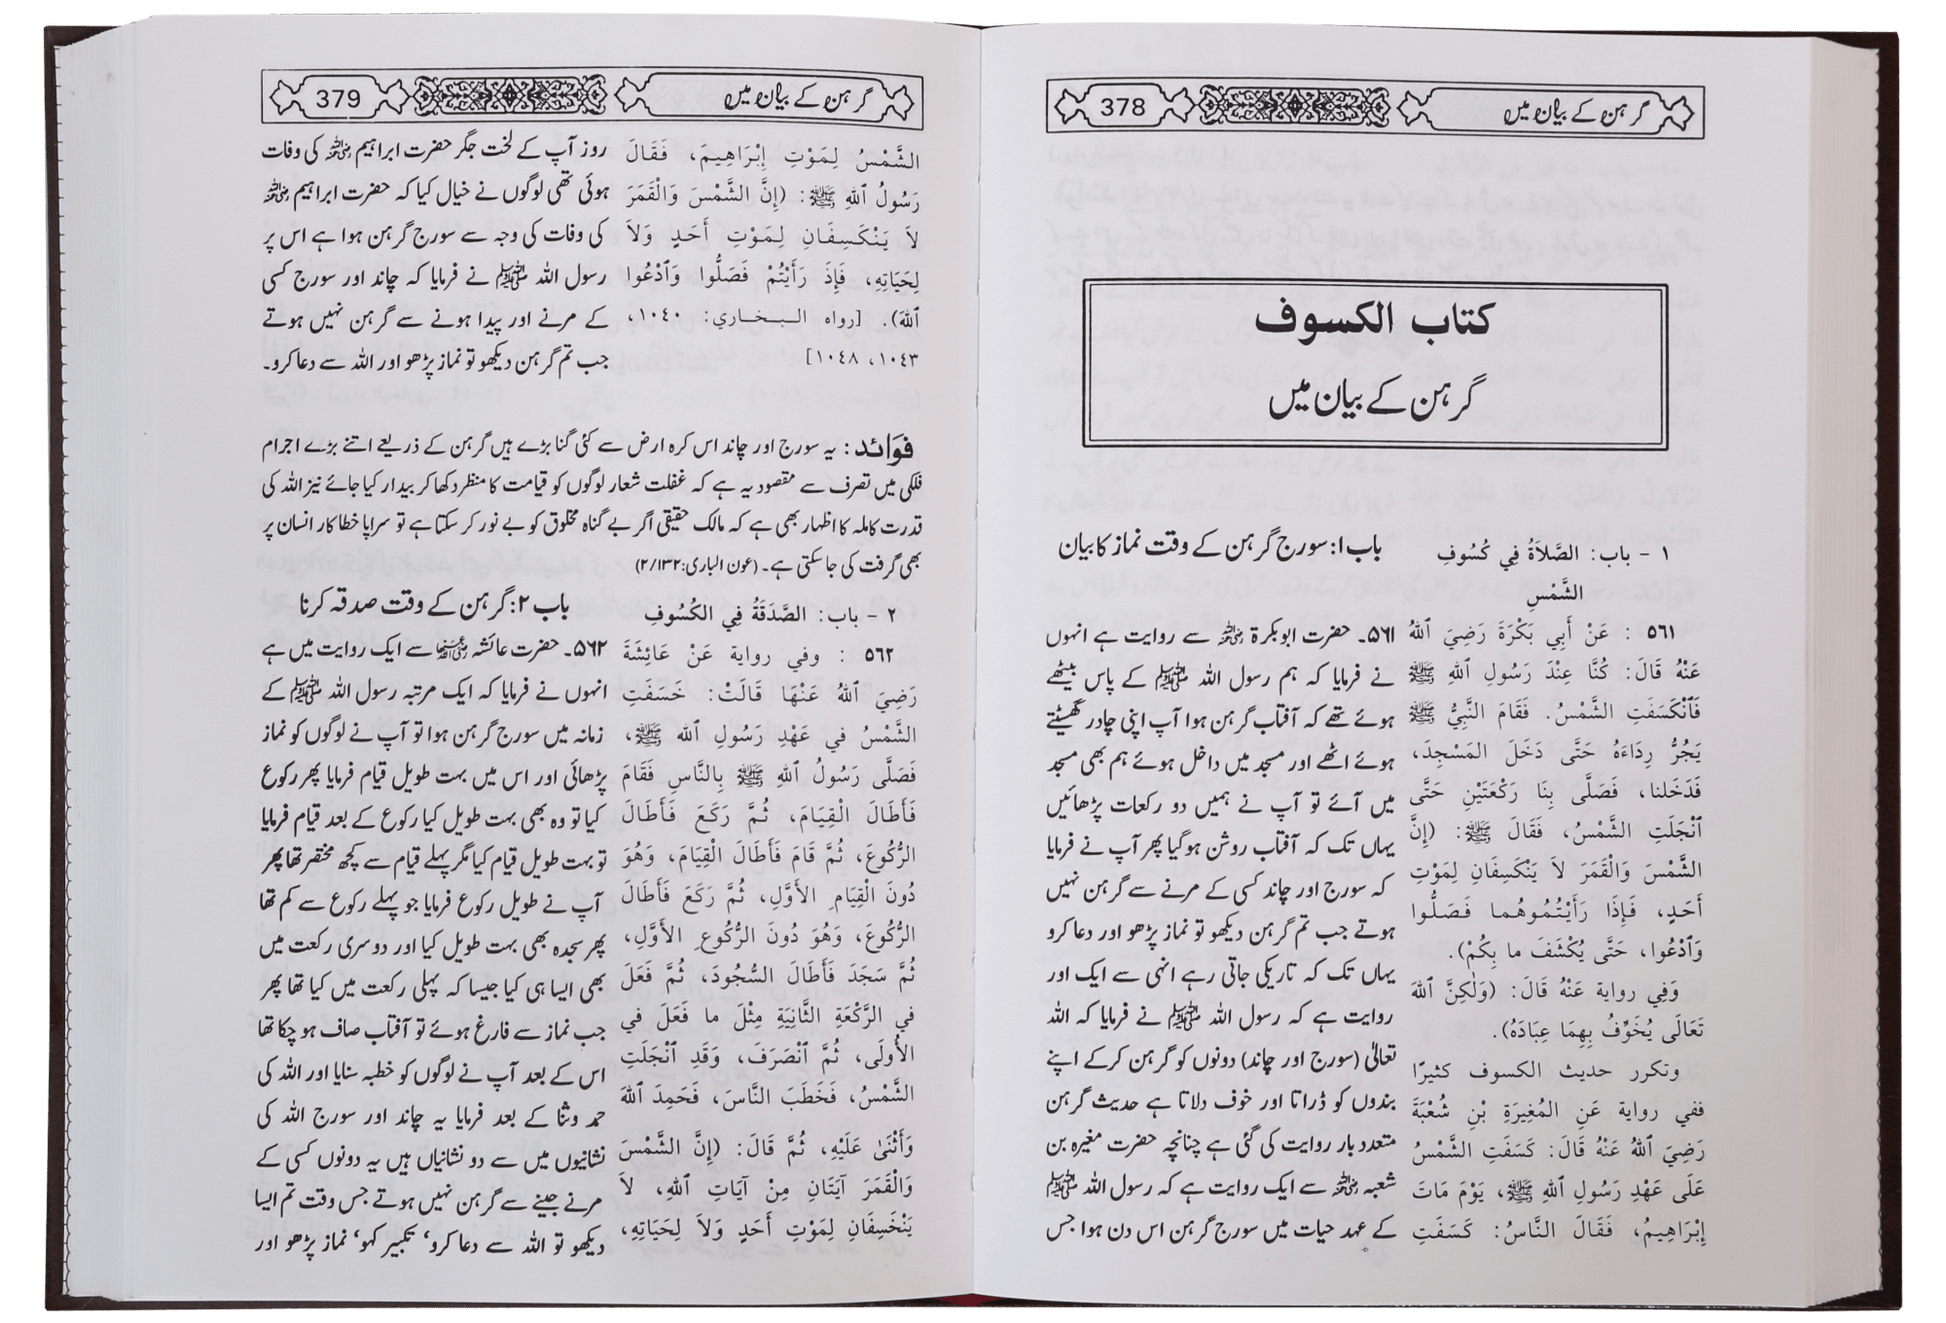 گرہن کے بیان میں
378
كتاب الكسوف
گرہن کے بیان میں
١ - باب: الصَّلاَةُ فِي كُسُوفِ
الشَّمْسِ
٥٦١ : عَنْ أَبِي بَكْرَةَ رَضِيَ ٱللهُ
عَنْهُ قَالَ: كُنَّا عِنْدَ رَسُولِ ٱللهِ ﷺ
فَٱنْكَسَفَتِ الشَّمْسُ. فَقَامَ النَّبِيُّ ﷺ
يَجُرُّ رِدَاءَهُ حَتَّى دَخَلَ المَسْجِدَ،
فَدَخَلنا، فَصَلَّى بِنَا رَكْعَتَيْنِ حَتَّى
ٱنْجَلَتِ الشَّمْسُ، فَقَالَ ﷺ: (إِنَّ
الشَّمْسَ وَالْقَمَرَ لاَ يَنْكَسِفَانِ لِمَوْتِ
أَحَدٍ، فَإِذَا رَأَيْتُمُوهُما فَصَلُّوا
وَٱدْعُوا، حَتَّى يُكْشَفَ ما بِكُمْ).
وَفِي رواية عَنْهُ قَالَ: (وَلٰكِنَّ ٱللهَ
تَعَالَى يُخَوِّفُ بِهِمَا عِبَادَهُ).
وتكرر حديث الكسوف كثيرًا
ففي رواية عَنِ المُغِيرَةِ بْنِ شُعْبَةَ
رَضِيَ ٱللهُ عَنْهُ قَالَ: كَسَفَتِ الشَّمْسُ
عَلَى عَهْدِ رَسُولِ ٱللهِ ﷺ، يَوْمَ مَاتَ
إِبْرَاهِيمُ، فَقَالَ النَّاسُ: كَسَفَتِ
باب ۱: سورج گرہن کے وقت نماز کا بیان
۵۶۱۔ حضرت ابوبکرۃ رضی اللہ عنہ سے روایت ہے انہوں
نے فرمایا کہ ہم رسول اللہ ﷺ کے پاس بیٹھے
ہوئے تھے کہ آفتاب گرہن ہوا آپ اپنی چادر گھسیٹتے
ہوئے اٹھے اور مسجد میں داخل ہوئے ہم بھی مسجد
میں آئے تو آپ نے ہمیں دو رکعات پڑھائیں
یہاں تک کہ آفتاب روشن ہوگیا پھر آپ نے فرمایا
کہ سورج اور چاند کسی کے مرنے سے گرہن نہیں
ہوتے جب تم گرہن دیکھو تو نماز پڑھو اور دعا کرو
یہاں تک کہ تاریکی جاتی رہے انہی سے ایک اور
روایت ہے کہ رسول اللہ ﷺ نے فرمایا کہ اللہ
تعالیٰ (سورج اور چاند) دونوں کو گرہن کرکے اپنے
بندوں کو ڈراتا اور خوف دلاتا ہے حدیث گرہن
متعدد بار روایت کی گئی ہے چنانچہ حضرت مغیرہ بن
شعبہ رضی اللہ عنہ سے ایک روایت ہے کہ رسول اللہ ﷺ
کے عہد حیات میں سورج گرہن اس دن ہوا جس
گرہن کے بیان میں
379
الشَّمْسُ لِمَوْتِ إِبْرَاهِيمَ، فَقَالَ
رَسُولُ ٱللهِ ﷺ: (إِنَّ الشَّمْسَ وَالْقَمَرَ
لاَ يَنْكَسِفَانِ لِمَوْتِ أَحَدٍ وَلاَ
لِحَيَاتِهِ، فَإِذَ رَأَيْتُمْ فَصَلُّوا وَٱدْعُوا
ٱللهَ). [رواه البخاري: ١٠٤٠،
١٠٤٣، ١٠٤٨]
روز آپ کے لخت جگر حضرت ابراہیم رضی اللہ عنہ کی وفات
ہوئی تھی لوگوں نے خیال کیا کہ حضرت ابراہیم رضی اللہ عنہ
کی وفات کی وجہ سے سورج گرہن ہوا ہے اس پر
رسول اللہ ﷺ نے فرمایا کہ چاند اور سورج کسی
کے مرنے اور پیدا ہونے سے گرہن نہیں ہوتے
جب تم گرہن دیکھو تو نماز پڑھو اور اللہ سے دعا کرو۔
فوَائد: یہ سورج اور چاند اس کرہ ارض سے کئی گنا بڑے ہیں گرہن کے ذریعے اتنے بڑے اجرام
فلکی میں تصرف سے مقصود یہ ہے کہ غفلت شعار لوگوں کو قیامت کا منظر دکھا کر بیدار کیا جائے نیز اللہ کی
قدرت کاملہ کا اظہار بھی ہے کہ مالک حقیقی اگر بے گناہ مخلوق کو بے نور کر سکتا ہے تو سراپا خطا کار انسان پر
بھی گرفت کی جا سکتی ہے۔ (عون الباری:۲/۱۳۲)
٢ - باب: الصَّدَقَةُ فِي الكُسُوفِ
٥٦٢ : وفي رواية عَنْ عَائِشَةَ
رَضِيَ ٱللهُ عَنْهَا قَالَتْ: خَسَفَتِ
الشَّمْسُ في عَهْدِ رَسُولِ ٱلله ﷺ،
فَصَلَّى رَسُولُ ٱللهِ ﷺ بِالنَّاسِ فَقَامَ
فَأَطَالَ الْقِيَامَ، ثُمَّ رَكَعَ فَأَطَالَ
الرُّكُوعَ، ثُمَّ قَامَ فَأَطَالَ الْقِيَامَ، وَهُوَ
دُونَ الْقِيَامِ الأَوَّلِ، ثُمَّ رَكَعَ فَأَطَالَ
الرُّكُوعَ، وَهُوَ دُونَ الرُّكُوعِ الأَوَّلِ،
ثُمَّ سَجَدَ فَأَطَالَ السُّجُودَ، ثُمَّ فَعَلَ
في الرَّكْعَةِ الثَّانِيَةِ مِثْلَ ما فَعَلَ في
الأُولَى، ثُمَّ ٱنْصَرَفَ، وَقَدِ ٱنْجَلَتِ
الشَّمْسُ، فَخَطَبَ النَّاسَ، فَحَمِدَ ٱللهَ
وَأَثْنَىٰ عَلَيْهِ، ثُمَّ قَالَ: (إِنَّ الشَّمْسَ
وَالْقَمَرَ آيَتَانِ مِنْ آيَاتِ ٱللهِ، لاَ
يَنْخَسِفَانِ لِمَوْتِ أَحَدٍ وَلاَ لِحَيَاتِهِ،
باب ۲: گرہن کے وقت صدقہ کرنا
۵۶۲۔ حضرت عائشہ رضی اللہ عنہا سے ایک روایت میں ہے
انہوں نے فرمایا کہ ایک مرتبہ رسول اللہ ﷺ کے
زمانہ میں سورج گرہن ہوا تو آپ نے لوگوں کو نماز
پڑھائی اور اس میں بہت طویل قیام فرمایا پھر رکوع
کیا تو وہ بھی بہت طویل کیا رکوع کے بعد قیام فرمایا
تو بہت طویل قیام کیا مگر پہلے قیام سے کچھ مختصر تھا پھر
آپ نے طویل رکوع فرمایا جو پہلے رکوع سے کم تھا
پھر سجدہ بھی بہت طویل کیا اور دوسری رکعت میں
بھی ایسا ہی کیا جیسا کہ پہلی رکعت میں کیا تھا پھر
جب نماز سے فارغ ہوئے تو آفتاب صاف ہو چکا تھا
اس کے بعد آپ نے لوگوں کو خطبہ سنایا اور اللہ کی
حمد وثنا کے بعد فرمایا یہ چاند اور سورج اللہ کی
نشانیوں میں سے دو نشانیاں ہیں یہ دونوں کسی کے
مرنے جینے سے گرہن نہیں ہوتے جس وقت تم ایسا
دیکھو تو اللہ سے دعا کرو‘ تکبیر کہو‘ نماز پڑھو اور